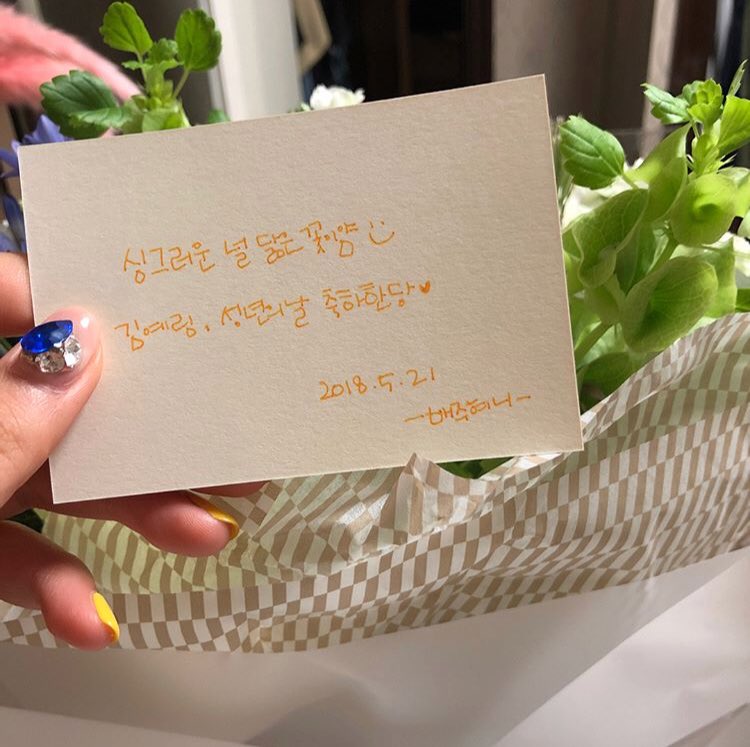 싱그러운 널 닮은 꽃이얌 :)
김예림, 성년의날 축하한당♥
2018.5.21
-배주혀니-